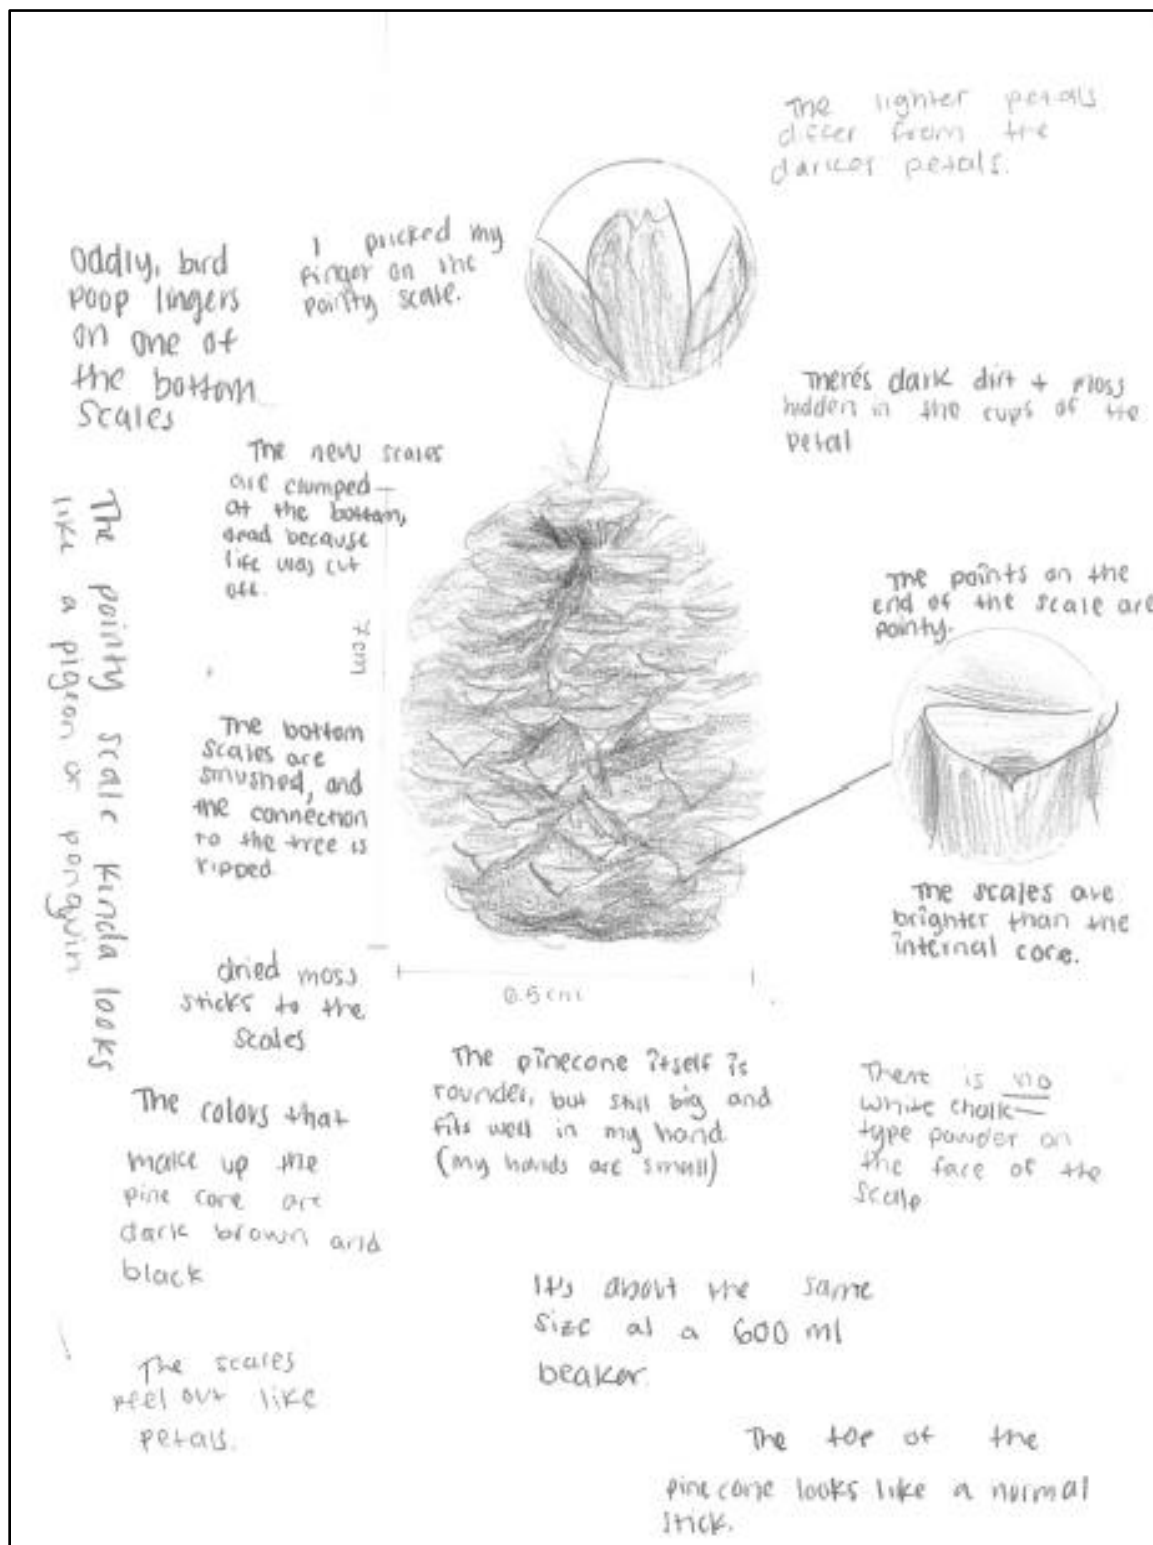 The lighter petals
differ from the
darker petals.
I pricked my
finger on the
pointy scale.
Oddly, bird
poop lingers
on one of
the bottom
scales
There's dark dirt + moss
hidden in the cups of the
petal
The new scales
are clumped
at the bottom,
dead because
life was cut
off.
7 cm
The points on the
end of the scale are
pointy.
The pointy scale kinda looks
like a pigeon or penguin
The bottom
scales are
smushed, and
the connection
to the tree is
ripped.
The scales are
brighter than the
internal core.
dried moss
sticks to the
scales
6.5 cm
The pinecone itself is
rounder, but still big and
fits well in my hand
(my hands are small)
There is no
white chalk-
type powder on
the face of the
scale
The colors that
make up the
pine cone are
dark brown and
black
It's about the same
size as a 600 ml
beaker.
The scales
peel out like
petals.
The top of the
pinecone looks like a normal
stick.